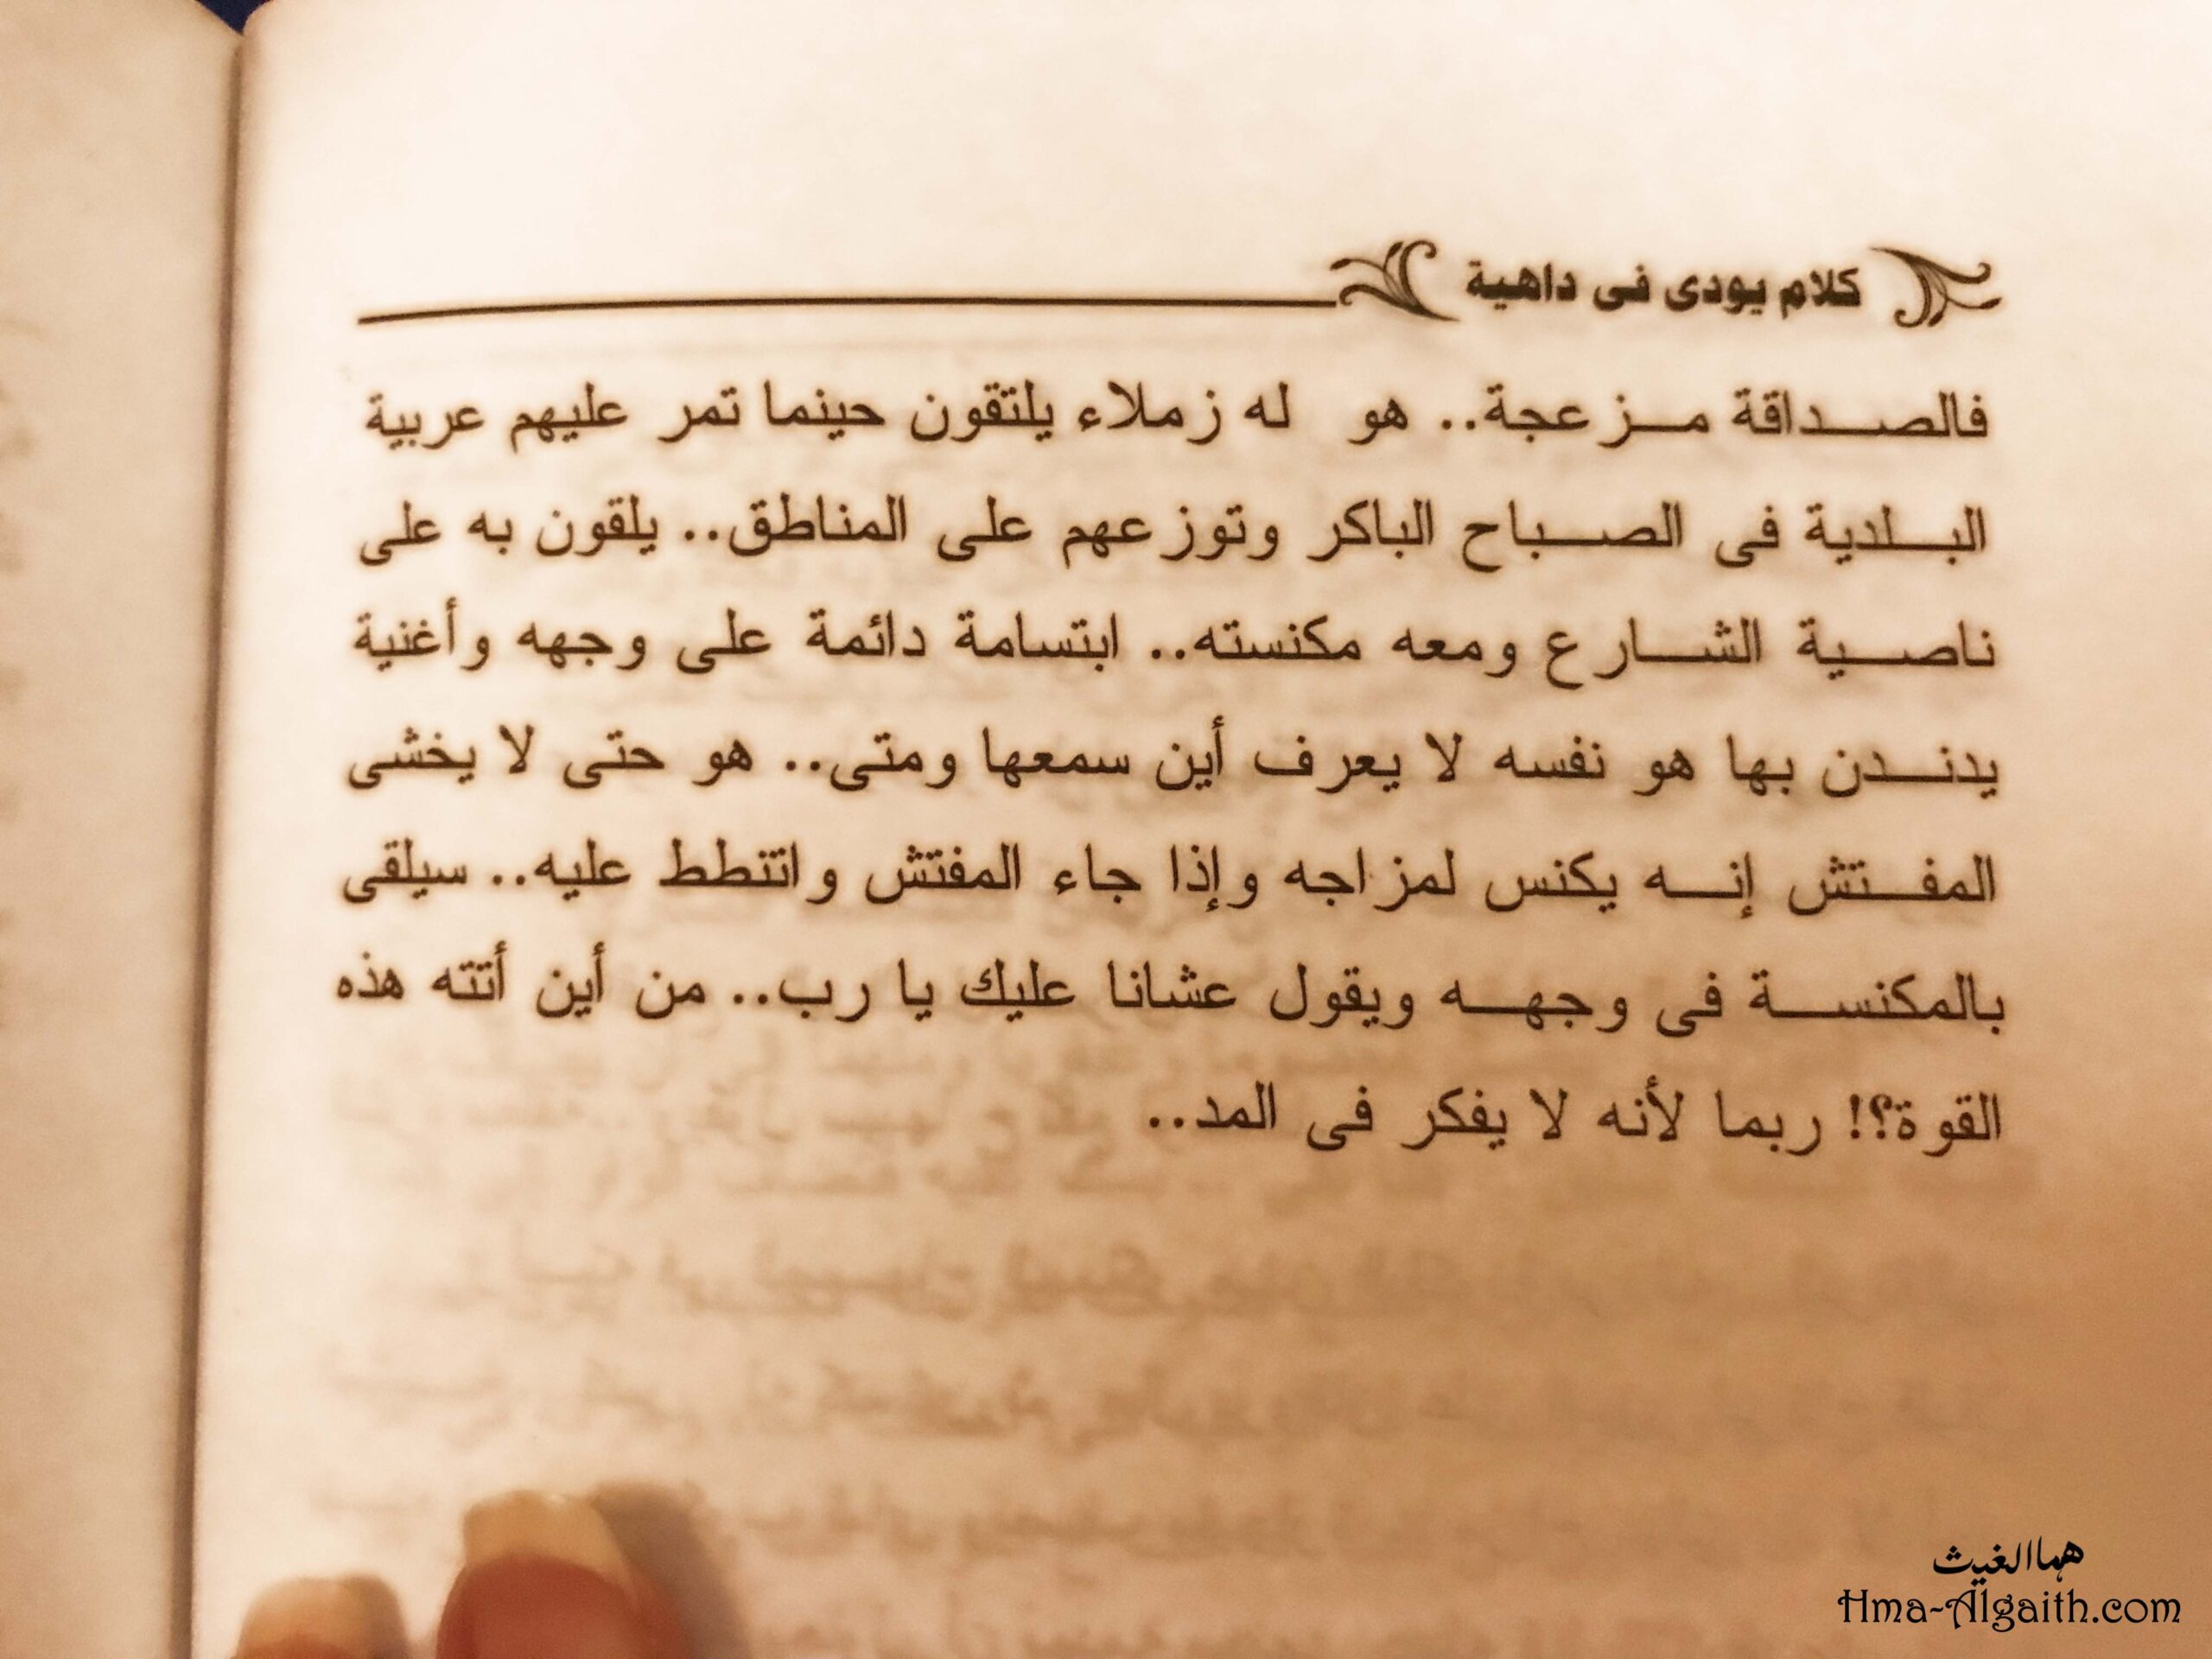 كلام يودى فى داهية
فالصداقة مزعجة.. هو له زملاء يلتقون حينما تمر عليهم عربية
البلدية فى الصباح الباكر وتوزعهم على المناطق.. يلقون به على
ناصية الشارع ومعه مكنسته.. ابتسامة دائمة على وجهه وأغنية
يدندن بها هو نفسه لا يعرف أين سمعها ومتى.. هو حتى لا يخشى
المفتش إنه يكنس لمزاجه وإذا جاء المفتش واتنطط عليه.. سيلقى
بالمكنسة فى وجهه ويقول عشانا عليك يا رب.. من أين أتته هذه
القوة؟! ربما لأنه لا يفكر فى المد..
هما الغيث
Hma-Algaith.com